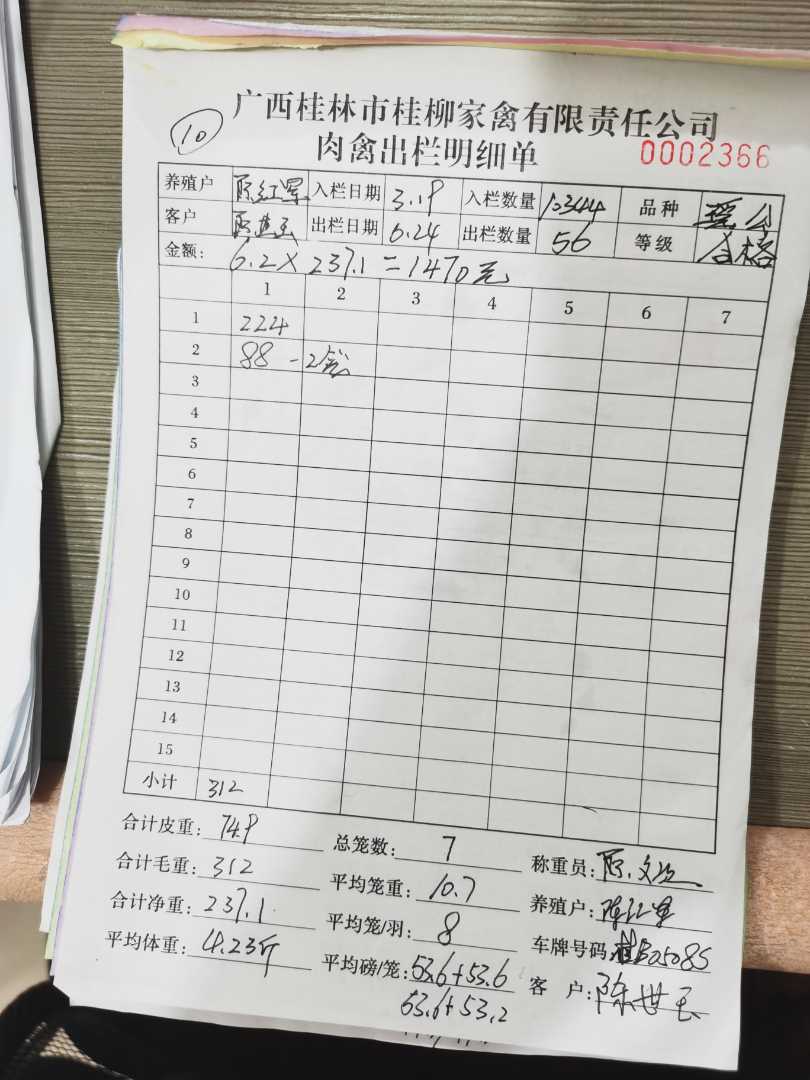 广西桂林市桂柳家禽有限责任公司
10 肉禽出栏明细单 0002366
养殖户 陈红军 入栏日期 3.19 入栏数量 10344 品种 瑶公
客户 陈世玉 出栏日期 6.24 出栏数量 56 等级 合格
金额: 6.2×237.1=1470元
1 2 3 4 5 6 7
1 224
2 88 -2笼
3
4
5
6
7
8
9
10
11
12
13
14
15
小计 312
合计皮重: 74.9 总笼数: 7 称重员: 陈
合计毛重: 312 平均笼重: 10.7 养殖户: 陈红军
合计净重: 237.1 平均笼/羽: 8 车牌号码: 桂B05085
平均体重: 4.23斤 平均磅/笼: 53.6+53.6 客 户: 陈世玉
53.6+53.2